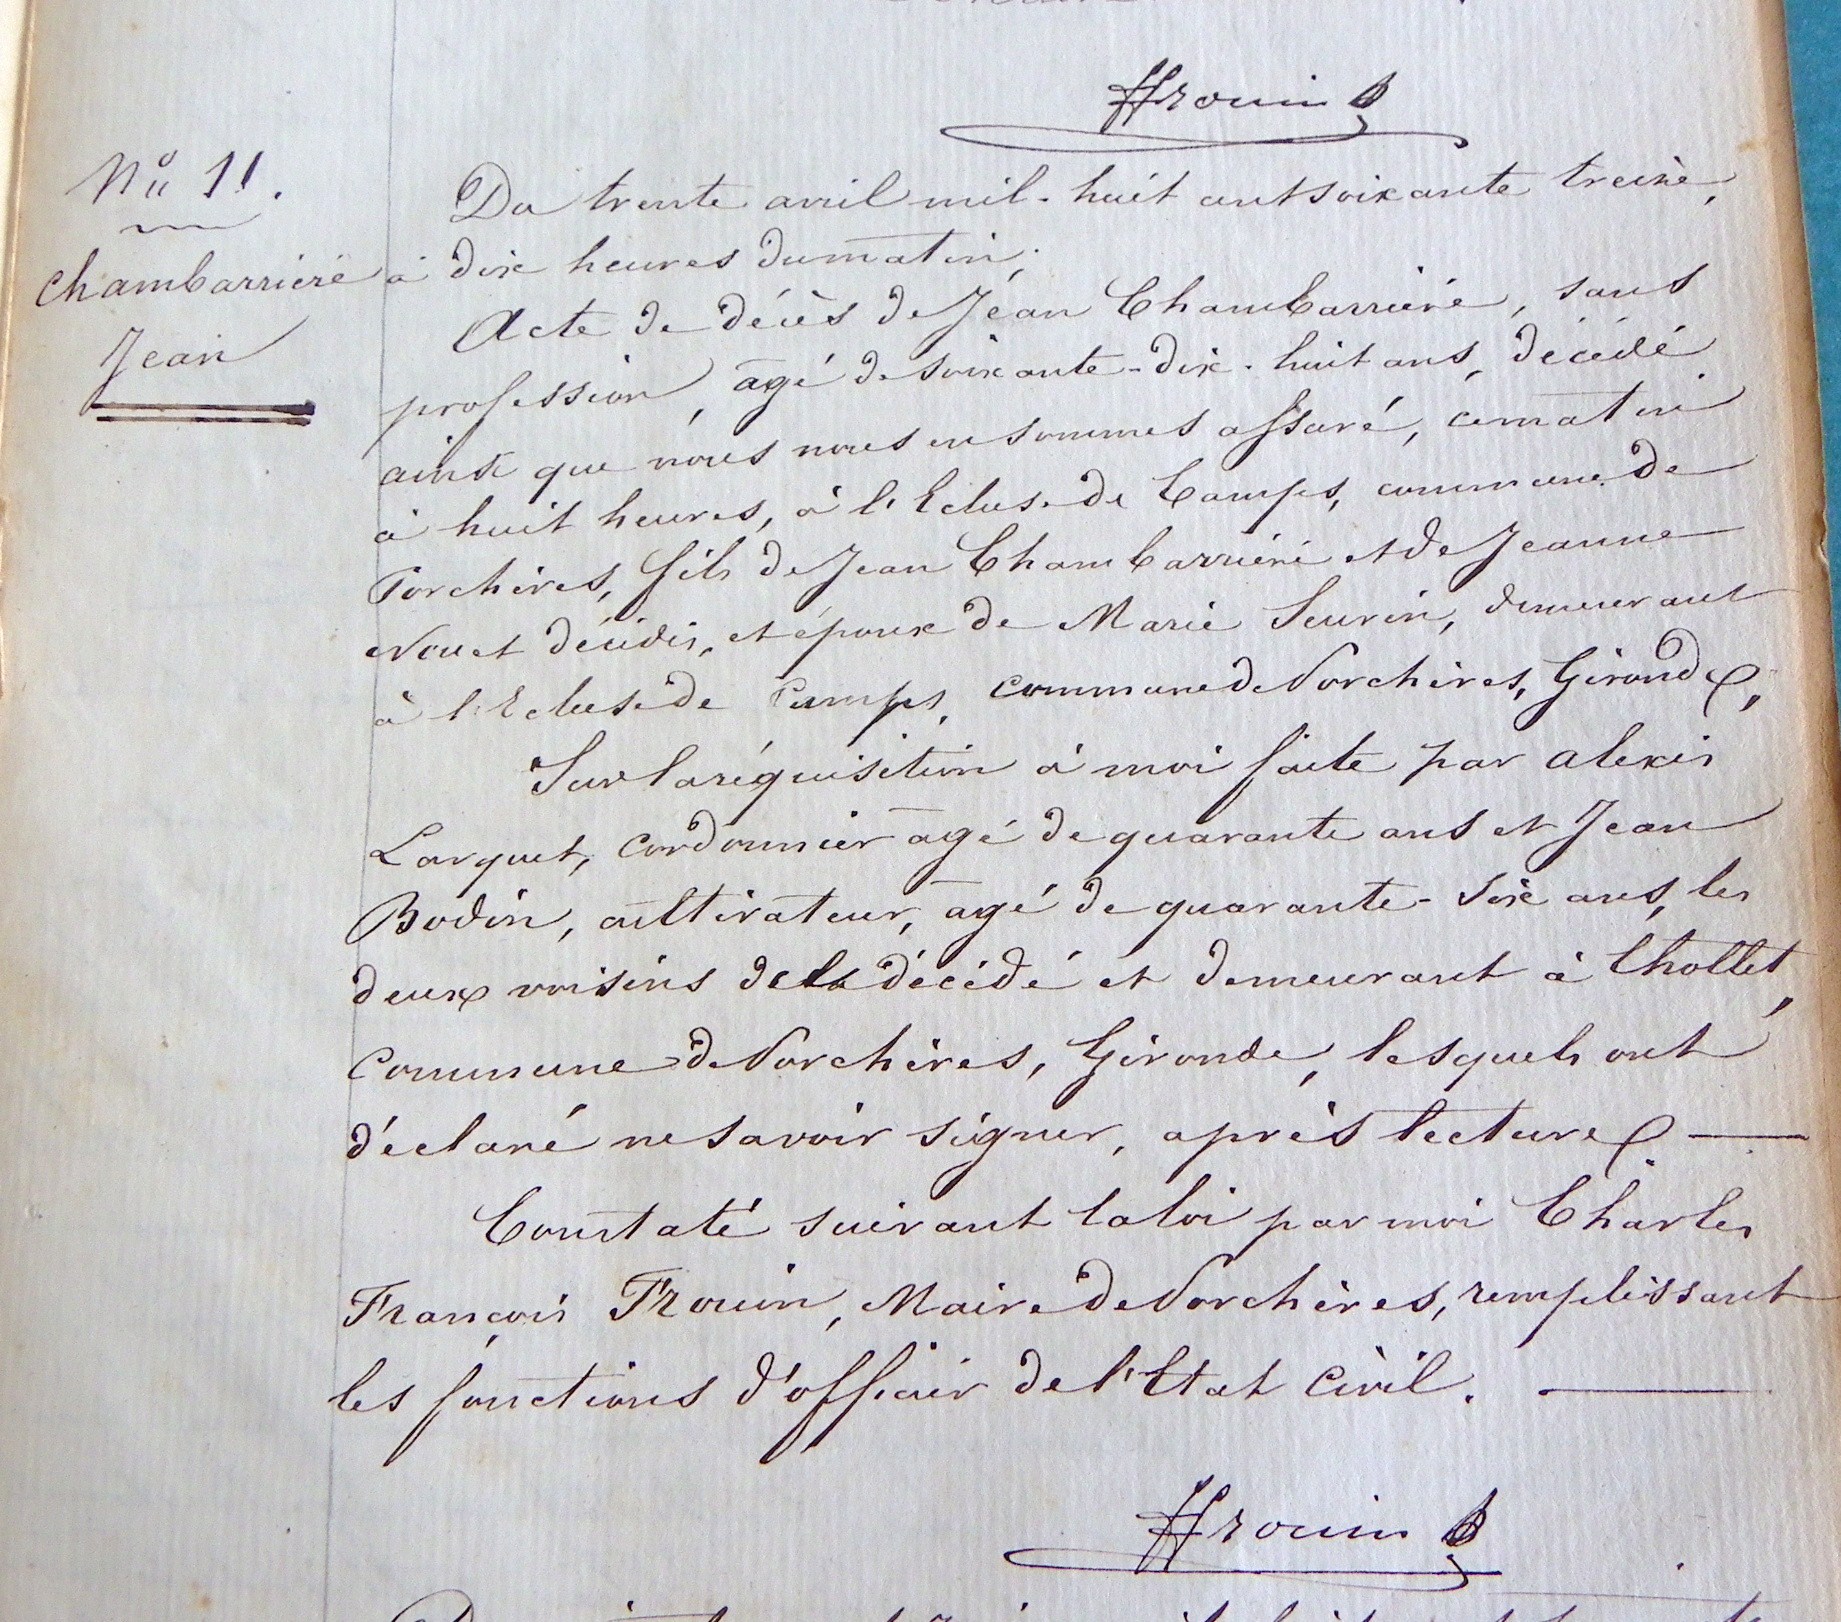 Frouin
Nº 11.
Chambarrière
Jean
Du trente avril mil-huit cent soixante treize,
à dix heures du matin,
Acte de décès de Jean Chambarrière, sans
profession, âgé de soixante-dix-huit ans, décédé
ainsi que nous nous en sommes assuré, ce matin
à huit heures, à l'Ecluse de Camps, commune de
Porchères, fils de Jean Chambarrière et de Jeanne
Nouet décédés, et époux de Marie Seurin, demeurant
à l'Ecluse de Camps, commune de Porchères, Gironde,
Sur la réquisition à moi faite par Alexis
Larquet, cordonnier âgé de quarante ans et Jean
Bodin, cultivateur, âgé de quarante-six ans, les
deux voisins de la décédé et demeurant à Chollet,
Commune de Porchères, Gironde, lesquels ont
déclaré ne savoir signer, après lecture
Constaté suivant la loi par moi Charles
François Frouin, Maire de Porchères, remplissant
les fonctions d'officier de l'Etat Civil.
Frouin